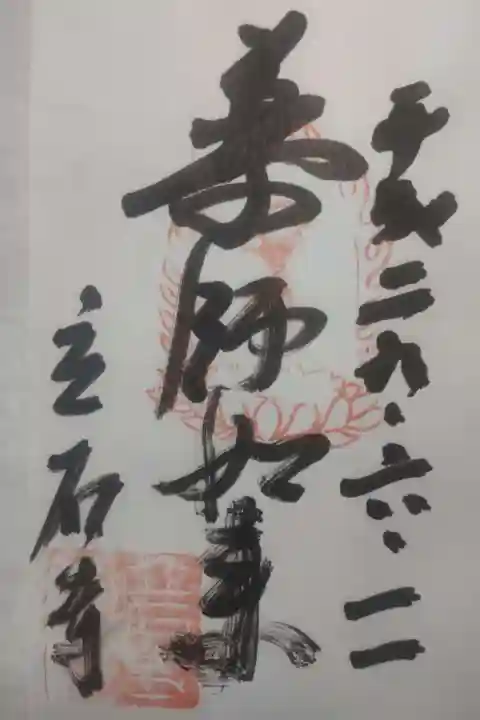 平成二九、六、二
薬師如来
立石寺